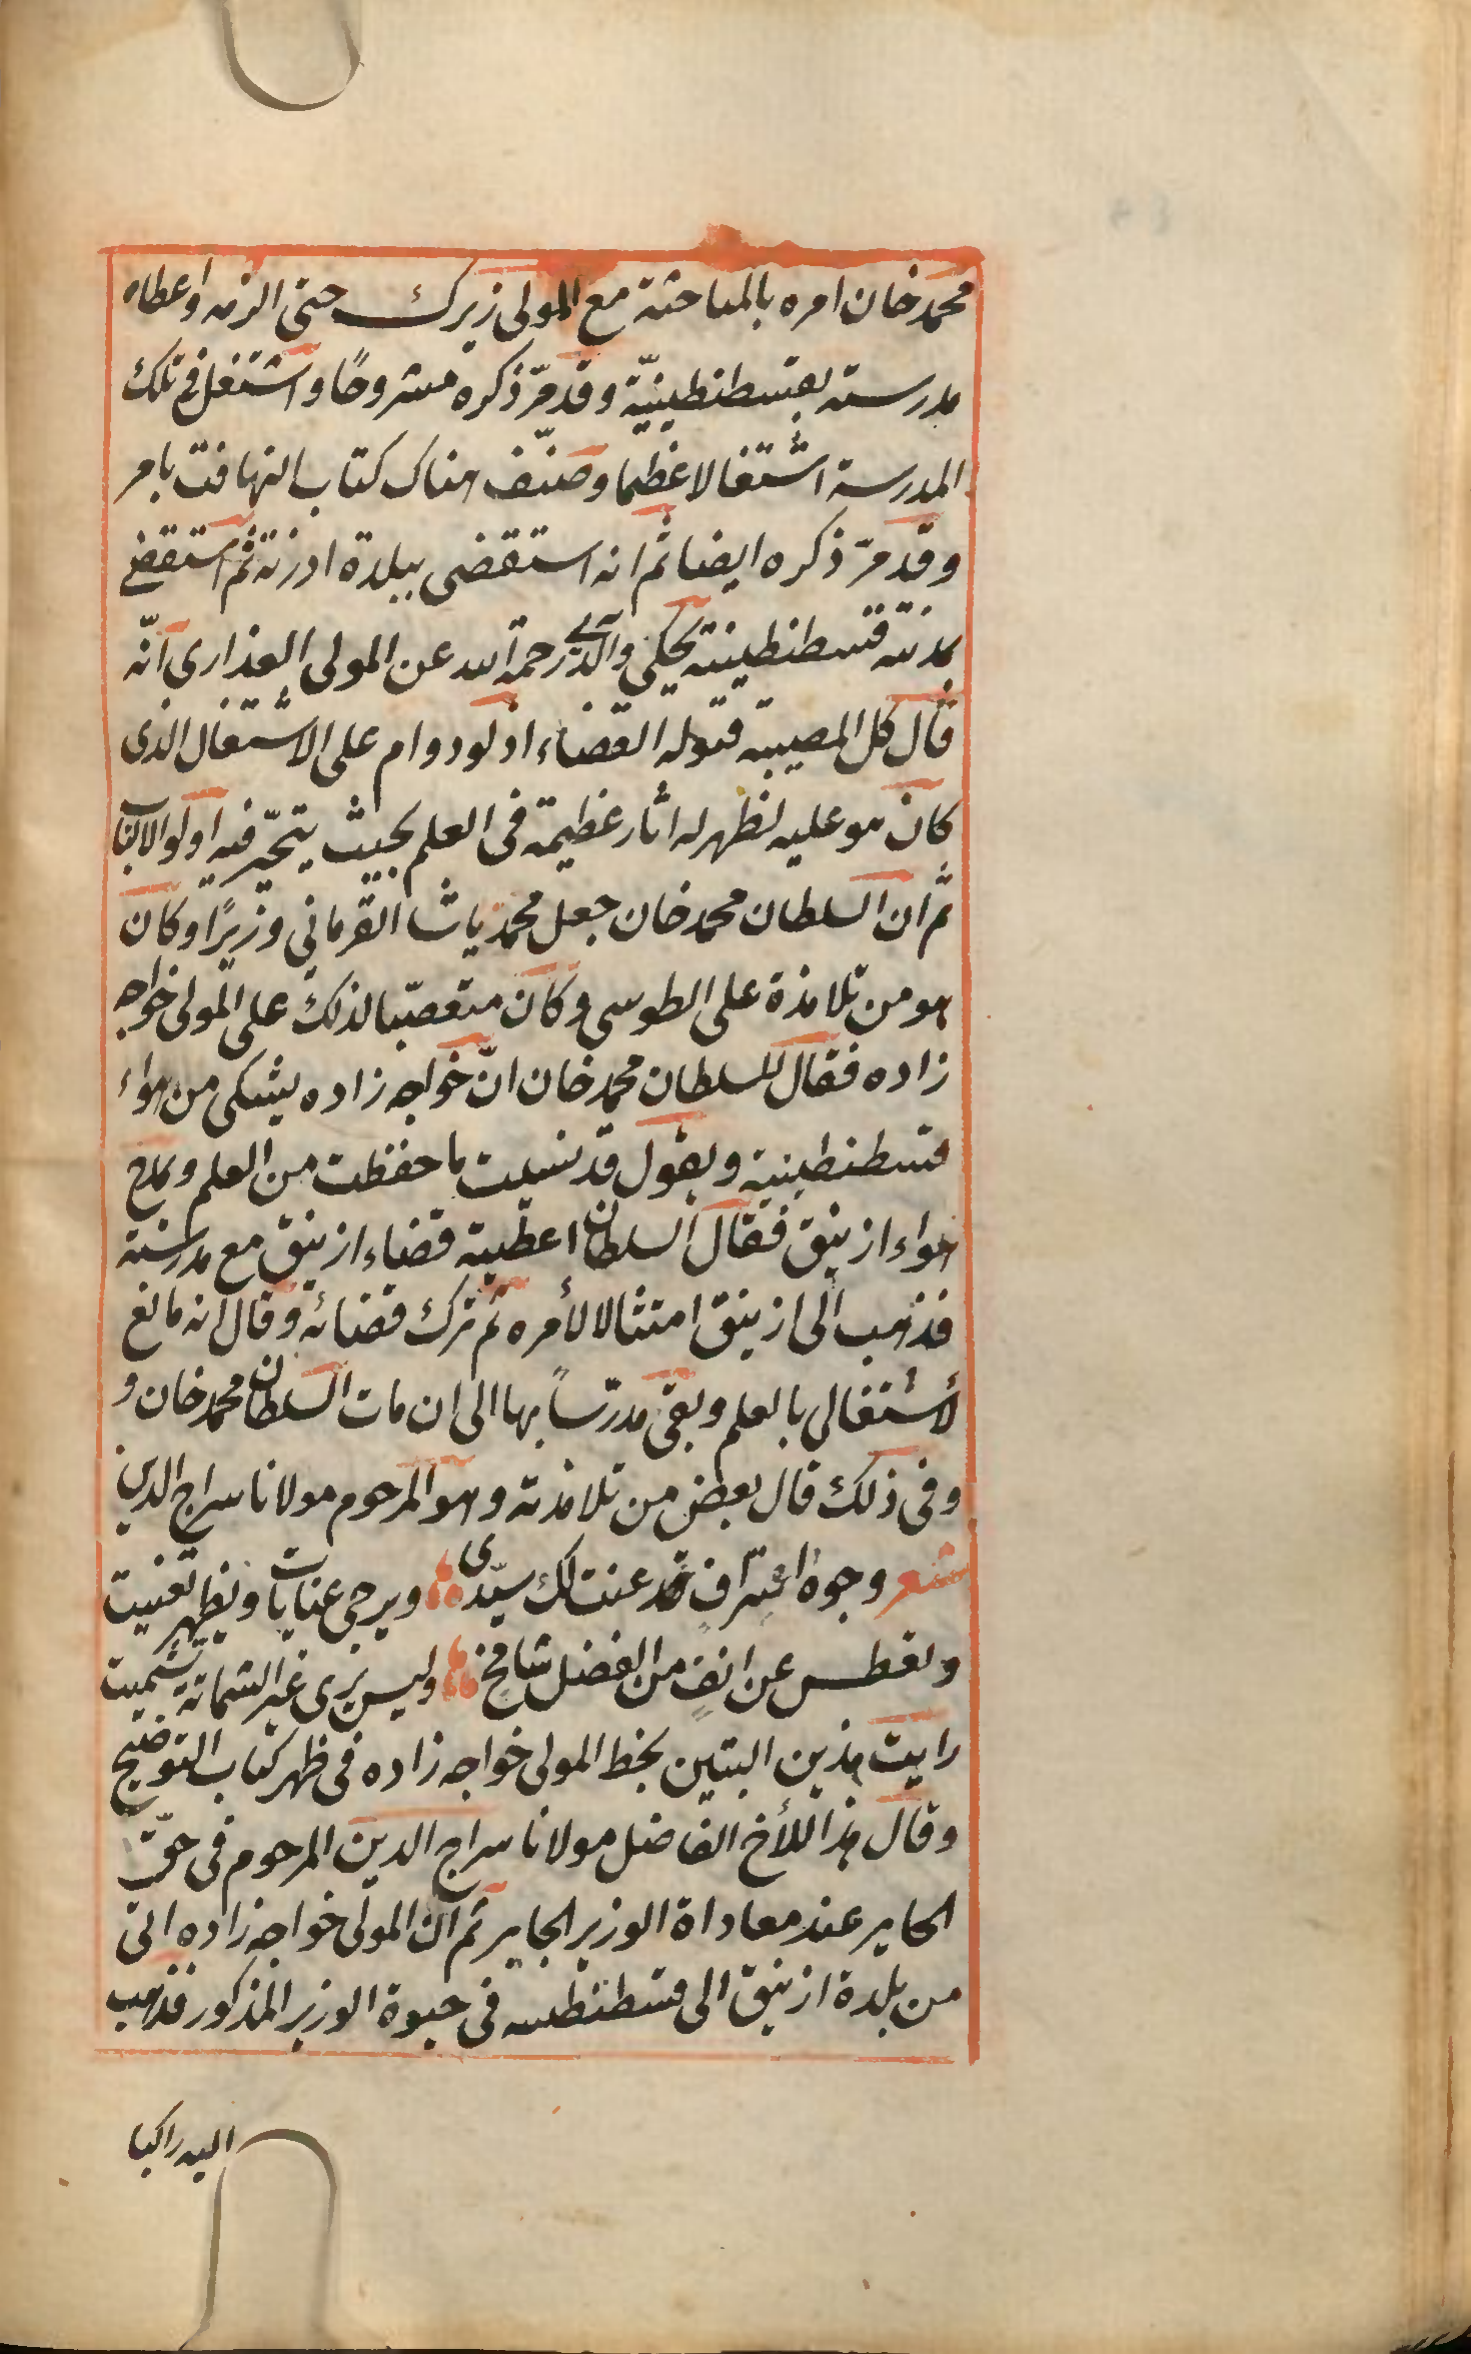 محمد خان امره بالمباحثة مع المولى زيرك حتى الزمه واعطاه
مدرسته بقسطنطينيّة وقد مرّ ذكره مشروحًا واشتغل فى تلك
المدرسة اشتغالا عظيما وصنّف هناك كتاب التهافت بامر
وقد مرّ ذكره ايضا ثم انه استقضى ببلدة ادرنه ثم استقضى
بمدينة قسطنطينية يحكى والدى رحمة الله عن المولى العذارى انّه
قال كل المصيبة قبوله القضاء اذ لو دوام على الاشتغال الذى
كان هو عليه لظهر له اثار عظيمة فى العلم بحيث يتحيّر فيه اولو الالباب
ثم ان السلطان محمد خان جعل محمد پاشا القرمانى وزيرًا وكان
هو من تلامذة على الطوسى وكان متعصّبا لذلك على المولى خواجه
زاده فقال للسلطان محمد خان انّ خواجه زاده يشكى من هواء
قسطنطينية ويقول قد نسيت ما حفظت من العلم ويمدح
هواء ازنيق فقال السلطان اعطيته قضاء ازنيق مع مدرسته
فذهب الى ازنيق امتثالا لأمره ثم ترك قضائه وقال انه مانع
لأشتغالى بالعلم وبقى مدرّساً بها الى ان مات السلطان محمد خان و
وفى ذلك قال بعض من تلامذته وهو المرحوم مولانا سراج الدين
شعر وجوه اعتراف قد عنت لك سيّدى ويرجى عنايات ويظهر تعنيت
وتعطس عن انفٍ من الفضل شامخ وليس يرى غير الشماتة تشميت
رايت هذين البيتين بخط المولى خواجه زاده فى ظهر كتاب التوضيح
وقال هذا للأخ الفاضل مولانا سراج الدين المرحوم فى حقّ
الحاير عند معاداة الوزير الجاير ثم ان المولى خواجه زاده اتى
من بلدة ازنيق الى قسطنطينيه فى حيوة الوزير المذكور فذهب
اليه راكبا